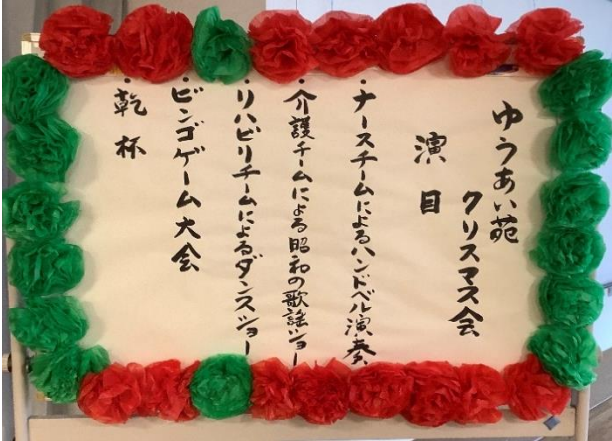 ゆうあい苑
クリスマス会
演目
・ナースチームによるハンドベル演奏
・介護チームによる昭和の歌謡ショー
・リハビリチームによるダンスショー
・ビンゴゲーム大会
・乾杯